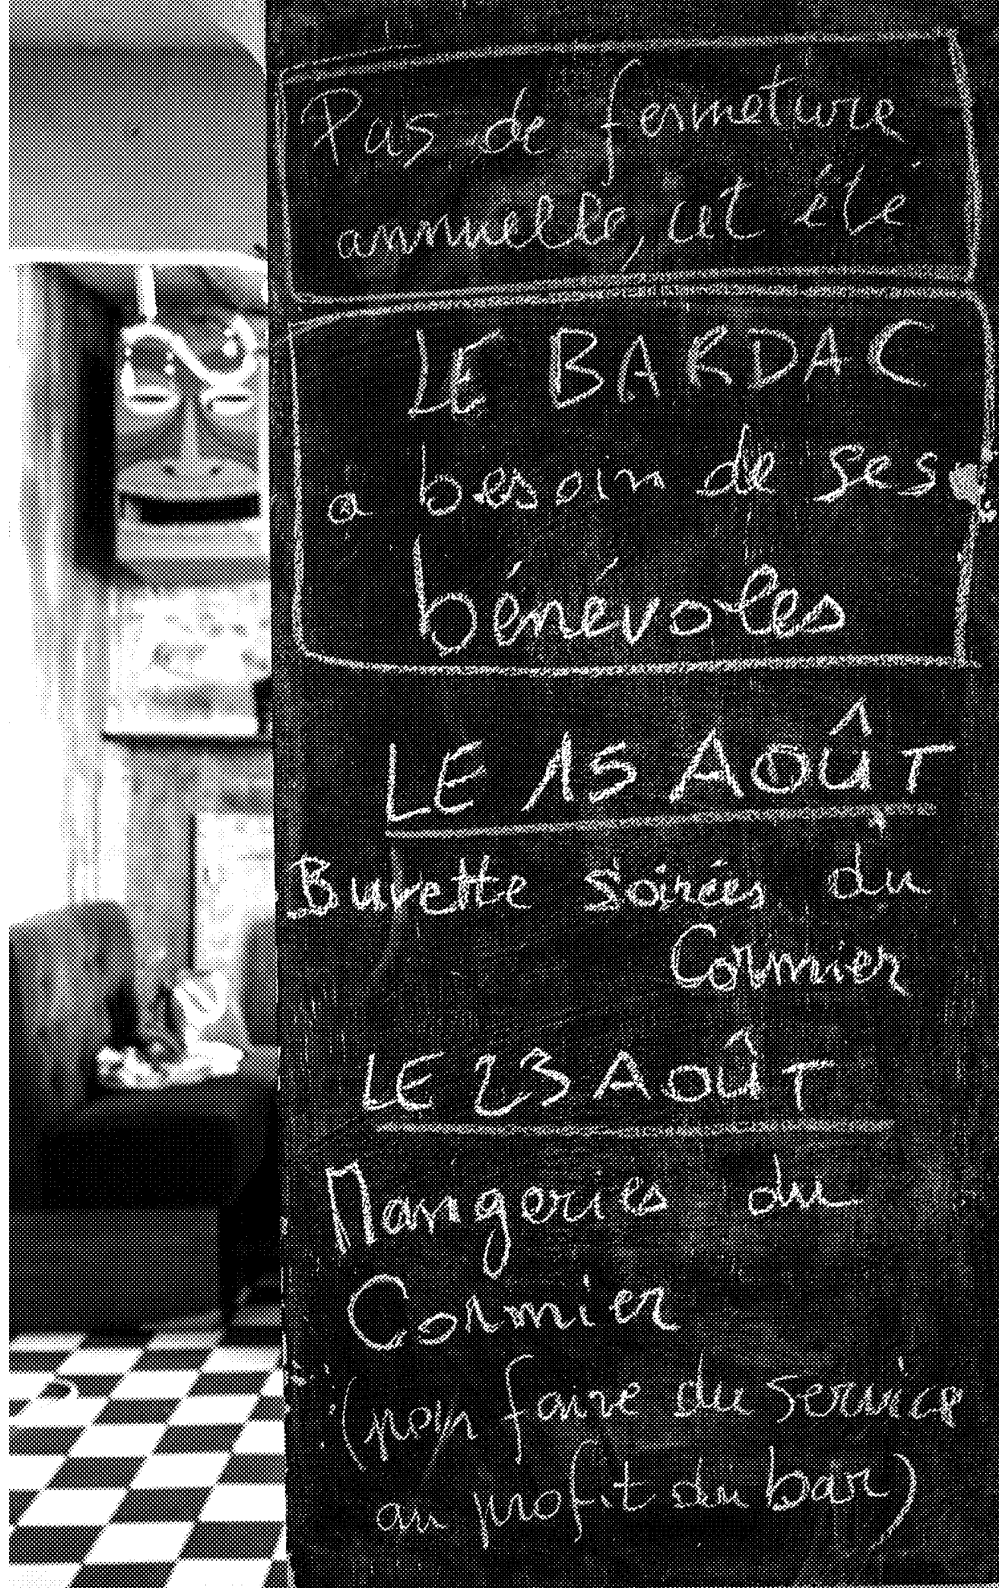 Pas de fermeture
annuelle, cet été
LE BARDAC
a besoin de ses
bénévoles
LE 15 AOÛT
Buvette soirées du
Cormier
LE 23 AOÛT
Mangeries du
Cormier
(pour faire du service
au profit du bar)